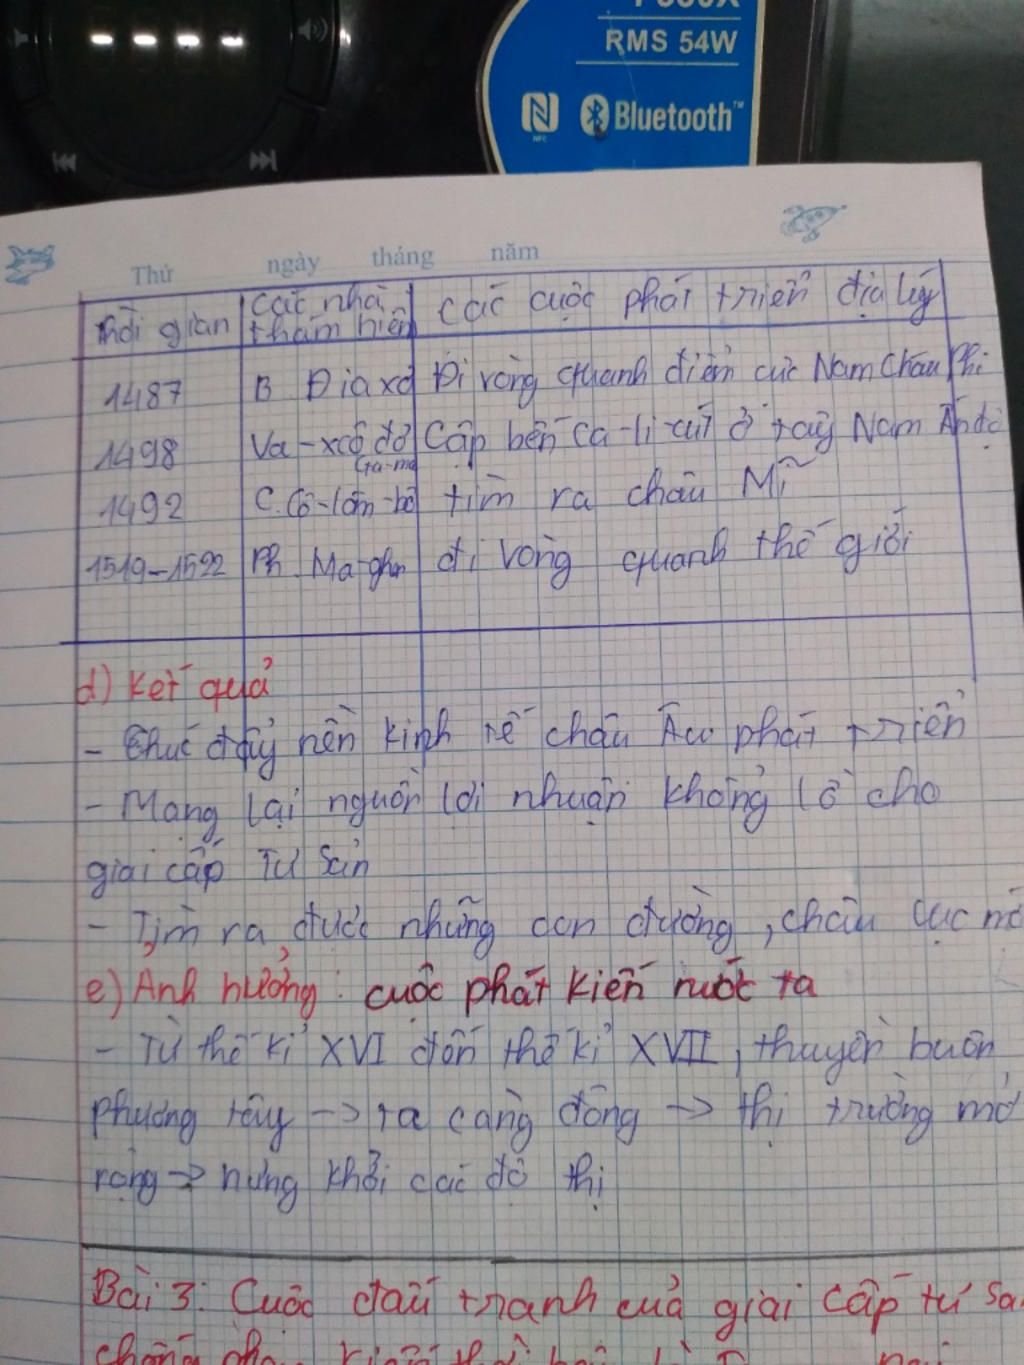 RMS 54W
NFC
Bluetooth™
Thứ ngày tháng năm
thời gian các nhà thám hiểm các cuộc phát triển địa lý
1487 B Điaxơ Đi vòng quanh điểm cực Nam Châu Phi
1498 Va-xcô đơ Ga-ma Cập bến Ca-li-cút ở tây Nam Ấn độ
1492 C. Cô-lôm-bô tìm ra châu Mĩ
1519-1522 Ph. Ma-gien đi vòng quanh thế giới
d) Kết quả
- Thúc đẩy nền kinh tế châu Âu phát triển
- Mang lại nguồn lợi nhuận khổng lồ cho
giai cấp Tư Sản
- Tìm ra được những con đường, châu lục mới
e) Ảnh hưởng: cuộc phát kiến nước ta
- Từ thế kỉ XVI đến thế kỉ XVII, thuyền buôn
phương tây -> ra càng đông -> thị trường mở
rộng -> hưng khởi các đô thị
Bài 3: Cuộc đấu tranh của giai cấp tư sả